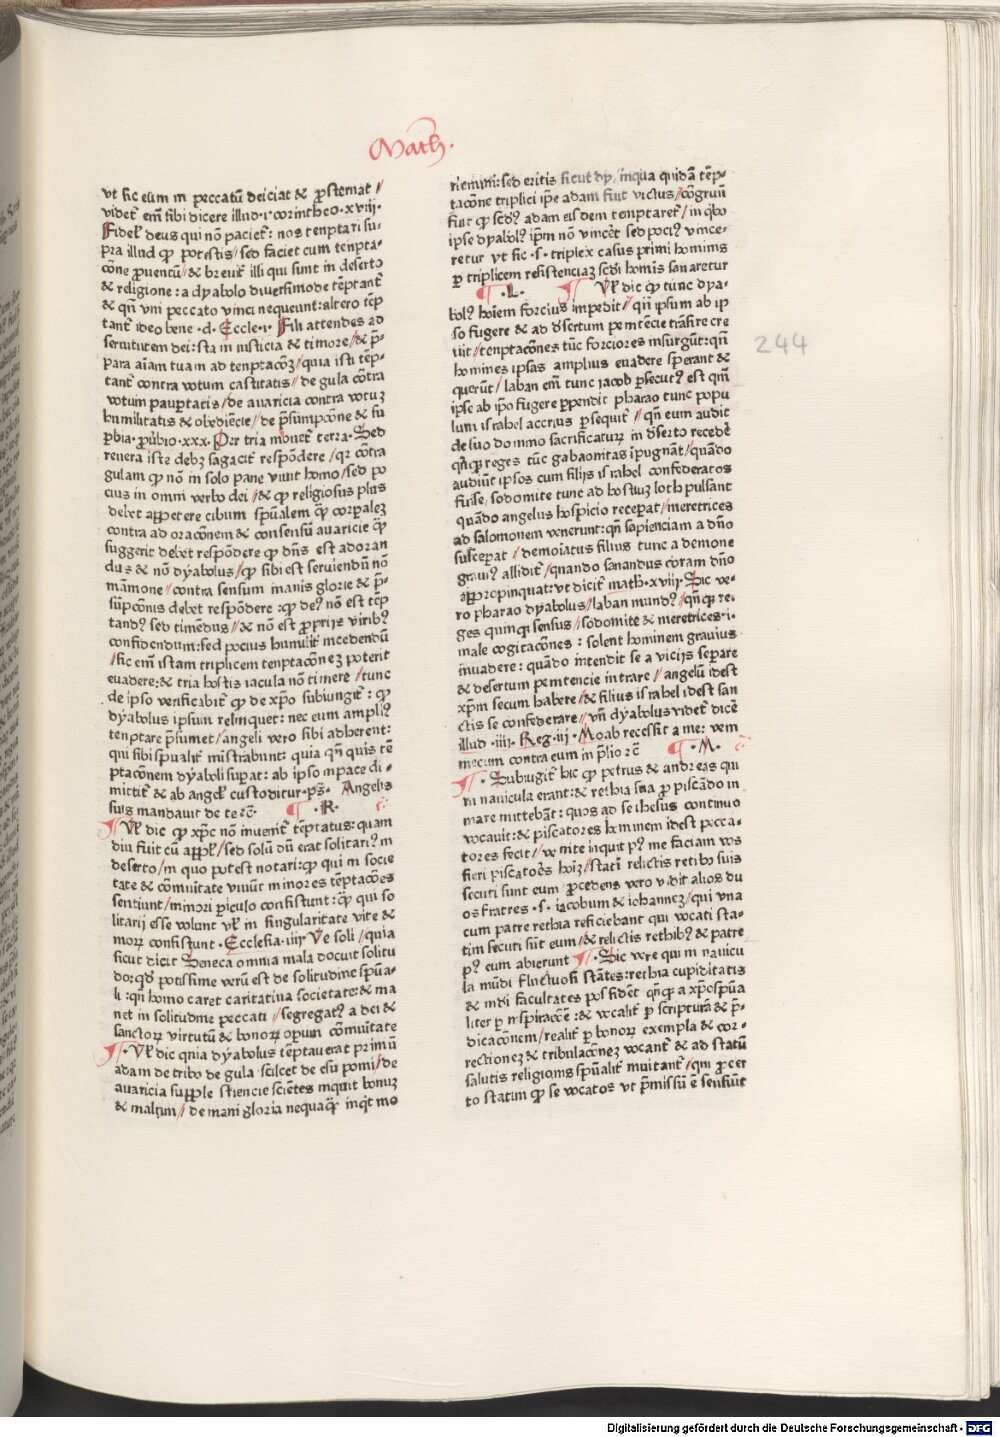 Math.
vt sic eum in peccatū deiciat & ꝓsternat/
videt̄ em̄ sibi dicere illud·1·corintheo·xviij·
Fidel̓ deus qui nō paciet̄: nos temptari su-
pra illud qꝫ potestis/sed faciet cum tempta-
cōne ꝓuentū/& breuit̓ illi qui sunt in deserto
& religione: a dyabolo diuersimode temptant̄
& qn̄ vni peccato vinci nequeunt: altero tēp
tant̄ ideo bene·d·Eccle·ı·Fili attendes ad
seruitutem dei: sta in iusticia & timore/& p̄-
para aīam tuam ad temptacōꝫ/quia isti tēp-
tant̄ contra votum castitatis//de gula cōtra
votum pauꝑtatis/de auaricia contra votuꝫ
humilitatis & obediēcie/de p̄sumpcōne & su
ꝑbia·ꝓūbio·xxx·Per tria mouet̄ terra·Sed
reuera iste debꝫ sagacit̓ respōdere/qꝛ cōtra
gulam qꝫ nō in solo pane viuit homo/sed po
cius in omni verbo dei//& qꝫ religiosus plus
debet appetere cibum spūalem qꝫ̄ corꝑaleꝫ
contra ad oracōnem & consensū auaricie qꝫ̄
suggerit debet respōdere qꝫ dn̄s est adoran
dus & nō dyabolus/qꝫ sibi est seruiendū nō
māmone/contra sensum inanis glorie & p̄-
sūpcōnis debet respōdere: qꝫ deꝰ nō est tēp
tandꝰ sed timēdus//& nō est ꝓprijs viribꝰ
confidendum: sed pocius humilit̓ incedendū
/sic em̄ istam triplicem temptacōneꝫ poterit
euadere: & tria hostis iacula nō timere/tunc
de ipso verificabit̄ qꝫ de xp̄o subiungit̄: qꝫ
dyabolus ipsum relinquet: nec eum ampliꝰ
temptare p̄sumet/angeli vero sibi adherent:
qui sibi spualit̓ mīstrabunt: quia qn̄ quis tē
ptacōnem dyaboli suꝑat: ab ipso in pace di-
mittit̄ & ab angel̓ custoditur·ps̄· Angelis
suis mandauit de te ⁊c̄ ¶·K·
¶Vl̓ dic qꝫ xp̄c nō inuenit̄ tēptatus: quam
diu fuit cū appl̓/sed solū dū erat solitariꝰ in
deserto/in quo potest notari: qꝫ qui in socie
tate & cōmuītate viuūt minores tēptacōes
sentiunt/minori ꝑiculo consistunt: qꝫ̄ qui so
litarij esse volunt vl̓ in singularitate vite &
morꝝ consistunt·Ecclesia·iiij·Ve soli/quia
sicut dicit Seneca omnia mala docuit solitu
do: qd̓ potissime verū est de solitudine spūa-
li: qn̄ homo caret caritatiua societate: & ma
net in solitudine peccati/segregatꝰ a dei &
sanctorꝝ virtutū & bonorꝝ operum cōmuītate
¶·Vl̓ dic quia dyabolus tēptauerat primū
adam de tribꝰ de gula scilicet de esu pomi/de
auaricia supple sciencie sciētes inquit bonuꝫ
& malum//de inani gloria nequaqꝫ̄ inqͥt mo
riemini: sed eritis sicut dy/in qua quidā tēp-
tacōne triplici ip̄e adam fuit victus/cōgruū
fuit qꝫ scdꝰ adam eisdem temptaret̄/in qͥbꝰ
ipse dyabolꝰ ip̄m nō vincēt sed pociꝰ vince-
retur vt sic·s·triplex casus primi hominis
ꝑ triplicem resistenciaꝫ scdi homīs sanaretur
¶·L· ¶Vl̓ dic qꝫ tunc dya-
bolꝰ hoīem forcius impedit/qn̄ ipsum ab ip
so fugere & ad dꝰsertum penitēcie trāsire cre
uit/temptacōnes tūc forciores insurgūt: qn̄
homines ipsas amplius euadere sperant &
querūt/laban em̄ tunc iacob ꝑsecutꝰ est qn̄
ipse ab ip̄o fugere ꝑpendit pharao tunc popu
lum israhel accrius ꝑsequit̄/qn̄ eum audit
de suo domino sacrificaturꝝ in dꝰserto recedē
qn̄qꝫ reges tūc gabaonitas īpugnāt/quādo
audiūt ipsos cum filijs israhel confederatos
fuisse, sodomite tunc ad hostiuꝫ loth pulsant
quādo angelus hospicio recepat/meretrices
ad salomonem venerunt: qn̄ sapienciam a dn̄o
susceꝑat/demoīatus filius tunc a demone
grauiꝰ allidit̄/quando sanandus coram dn̄o
appropinquat: vt dicit math·xviij·Sic ve-
ro pharao dyabolus/laban mundꝰ/qn̄qꝫ re-
ges quinqꝫ sensus/sodomite & meretrices·i·
male cogitacōnes: solent hominem grauius
inuadere: quādo intendit se a vicijs seperare
& desertum penitencie intrare/angelū idest
xp̄m secum habere/& filius israhel idest san
ctis se confederare/vn̄ dyabolus videt̄ dicē
illud·iiij·Reg·iij·Moab recessit a me: veni
mecum contra eum in p̄lio ⁊c̄ ¶·M·
¶·Subiūgit̄ hic qꝫ petrus & andreas qui
in nauicula erant: & rethia sua ꝓ piscādo in
mare mittebāt: quos ad se ihesus continuo
vocauit: & piscatores hominem idest pecca-
tores fecit/venite inquit pꝰ me faciam vos
fieri piscatoēs hoīꝫ/statī relictis retibꝰ suis
secuti sunt eum/ꝓcedens vero vidit alios du
os fratres·s·iacobum & iohanneꝫ/qui vna
cum patre rethia reficiebant qui vocati sta-
tim secuti sūt eum/& relictis rethibꝰ & patre
pꝰ eum abierunt ¶·Sic vere qui in nauicu
la mūdi fluctuosi stātes: rethia cupiditatis
& mdi facultates possidēt qn̄qꝫ a xp̄o spūa
liter ꝑ īspiracōeꝫ: & vocalit̓ ꝑ scripturā & p̄-
dicacōnem/realit̓ ꝑ bonorꝝ exempla & cor-
rectioneꝫ & tribulacōneꝫ vocant̄ & ad statū
salutis religionis spūalit̓ inuitant̄/qui ꝓcer
to statim qꝫ se vocatos vt p̄missū ē sensiūt
244
Digitalisierung gefördert durch die Deutsche Forschungsgemeinschaft - DFG